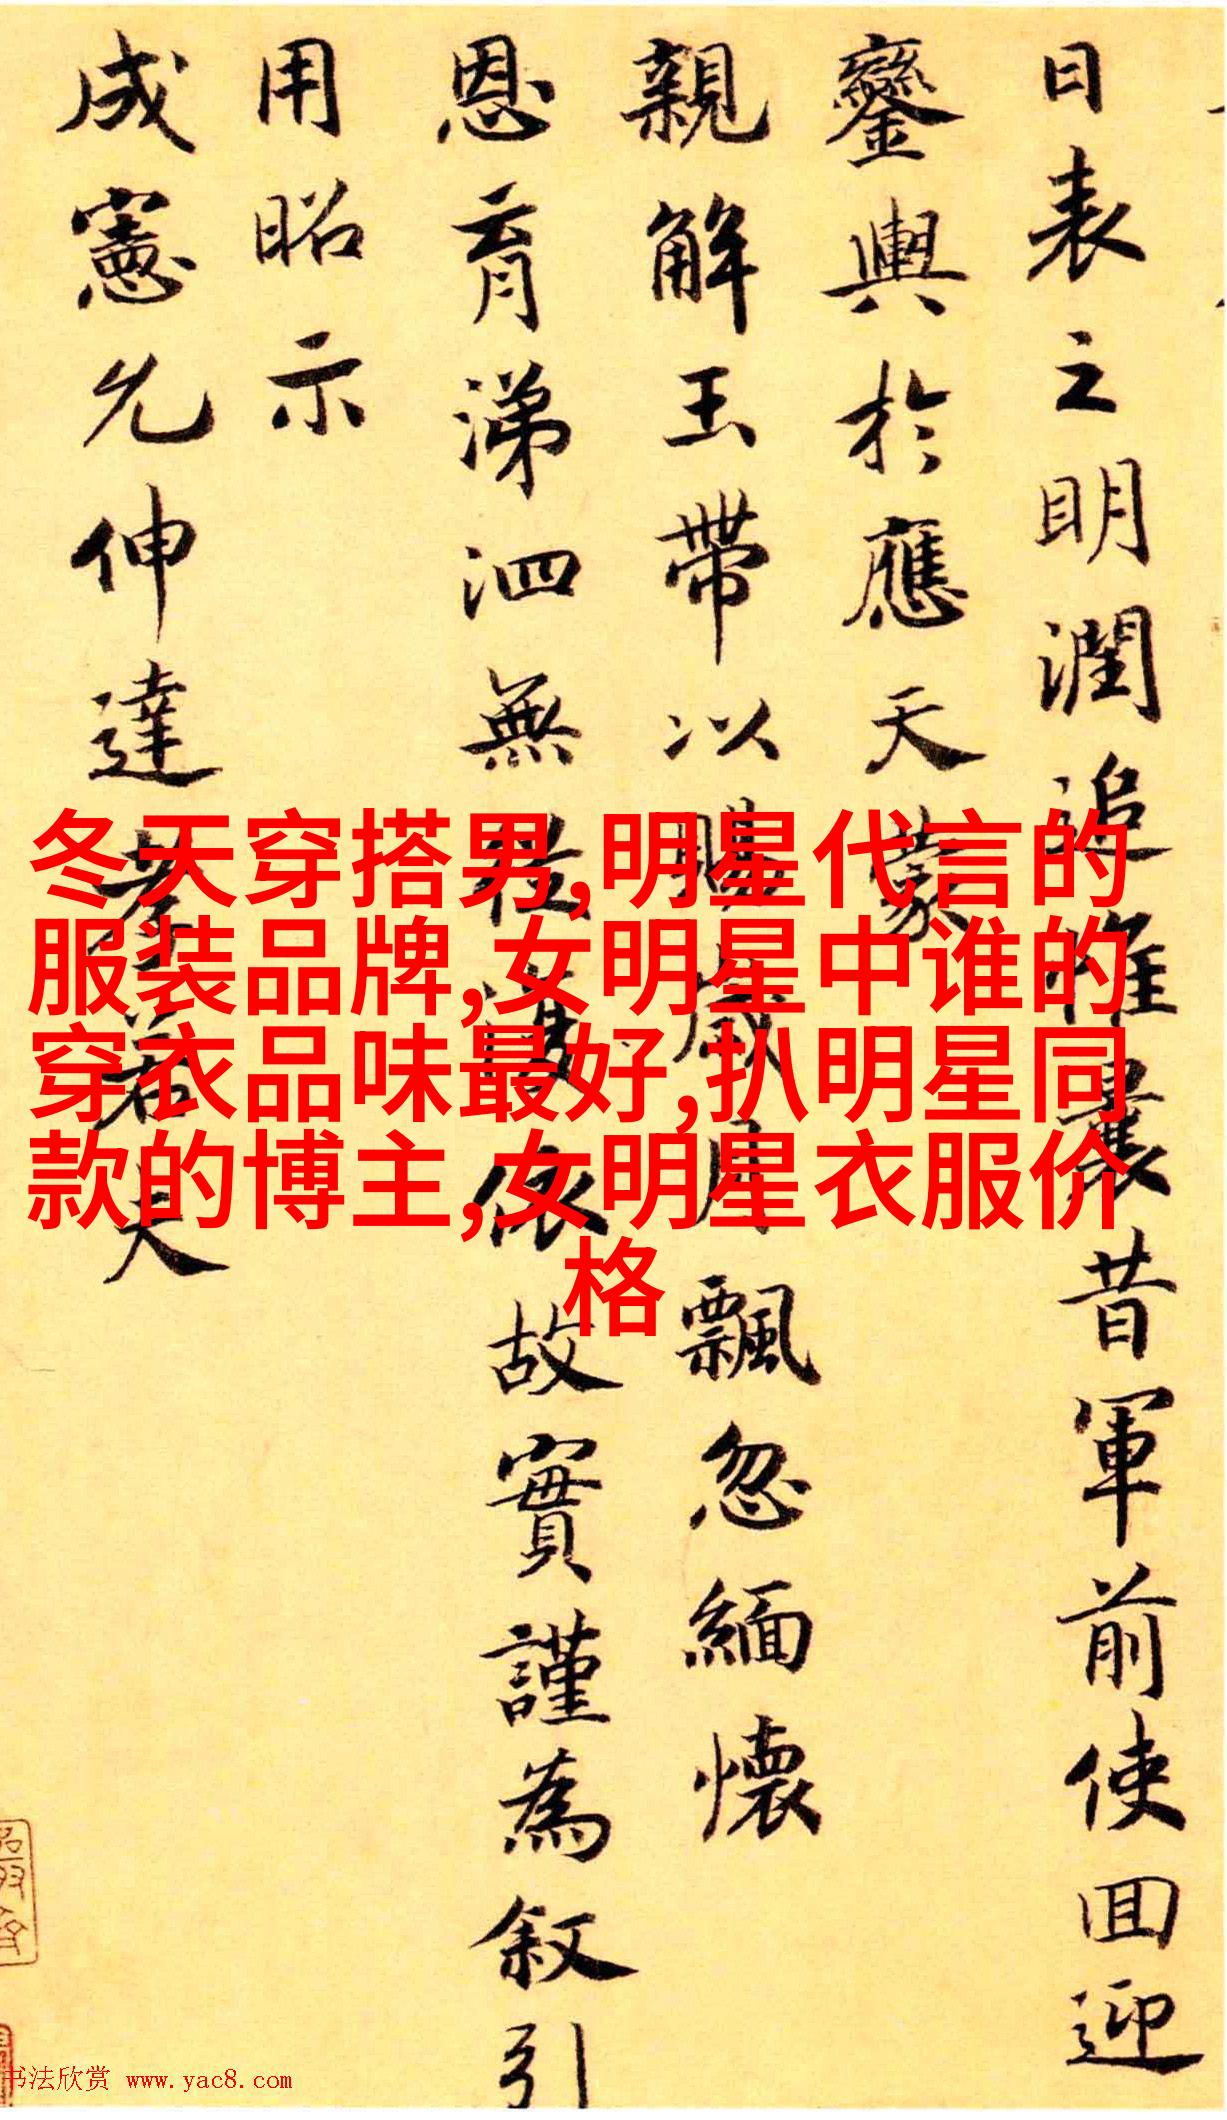 日表之明潤追惟曩昔軍前使回迎
鑾輿於應天蒙
親解玉帶以賜歲月飄忽緬懷
恩育涕泗無依故實謹為敘引
用昭示
成憲允伸達孝若夫
冬天穿搭男,明星代言的
服装品牌,女明星中谁的
穿衣品味最好,扒明星同
款的博主,女明星衣服价
格
书法欣赏 www.yac8.com